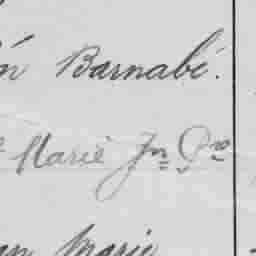 n Barnabé.
Marie Jn Pre
an Marie